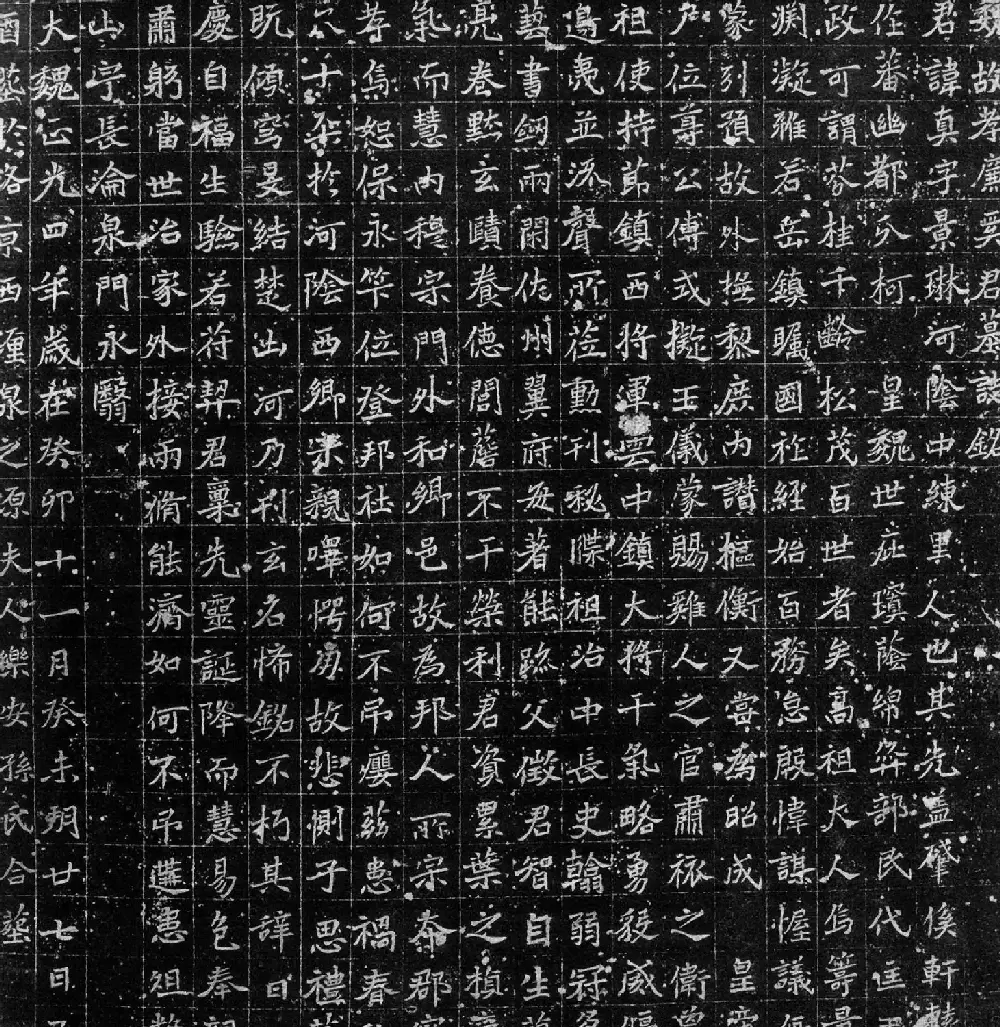 魏故孝廉奚君墓誌銘
君諱真字景琳河陰中練里人也其先蓋肇俟軒轅
作蕃幽都分柯皇魏世庇瓊蔭綿弈部民代匡
政可謂芬桂千齡松茂百世者矣高祖大人烏籌
渊凝雅若岳鎮矚國祚經始百務怠殷幃謀幄議
蒙引預故外撫黎庶內讚樞衡又嘗為昭成皇
尸位尊公傅式擬王儀蒙賜雞人之官肅袚之衛
祖使持節鎮西將軍雲中鎮大將干氣略勇毅威
邊夷並流聲所莅勳刊秘牒祖治中長史翰弱冠
藝書劒兩閑佐州翼府每著能跡父徵君智自生
亮卷黙玄賾養德閭蓬不干榮利君資累葉之楨
氣而慧內穆宗門外和鄉邑故為邦人所宗泰郡
孝焉恕保永笇位登邦社如何不弔癭茲患禍春
六十卒於河陰西鄉宋親嗶愕朋故悲惻子思禮
旣傾穹旻結楚出河乃刊玄石怖銘不朽其辭曰
慶自福生驗若符契君稟先靈誕降而慧易色奉
肅躬當世治家外接兩脩能濟如何不弔遘患俎
山宇長淪泉門永翳
大魏正光四年歲在癸卯十一月癸未朔廿七日
酉塟於洛京西瀍泉之源夫人樂安孫氏合塟